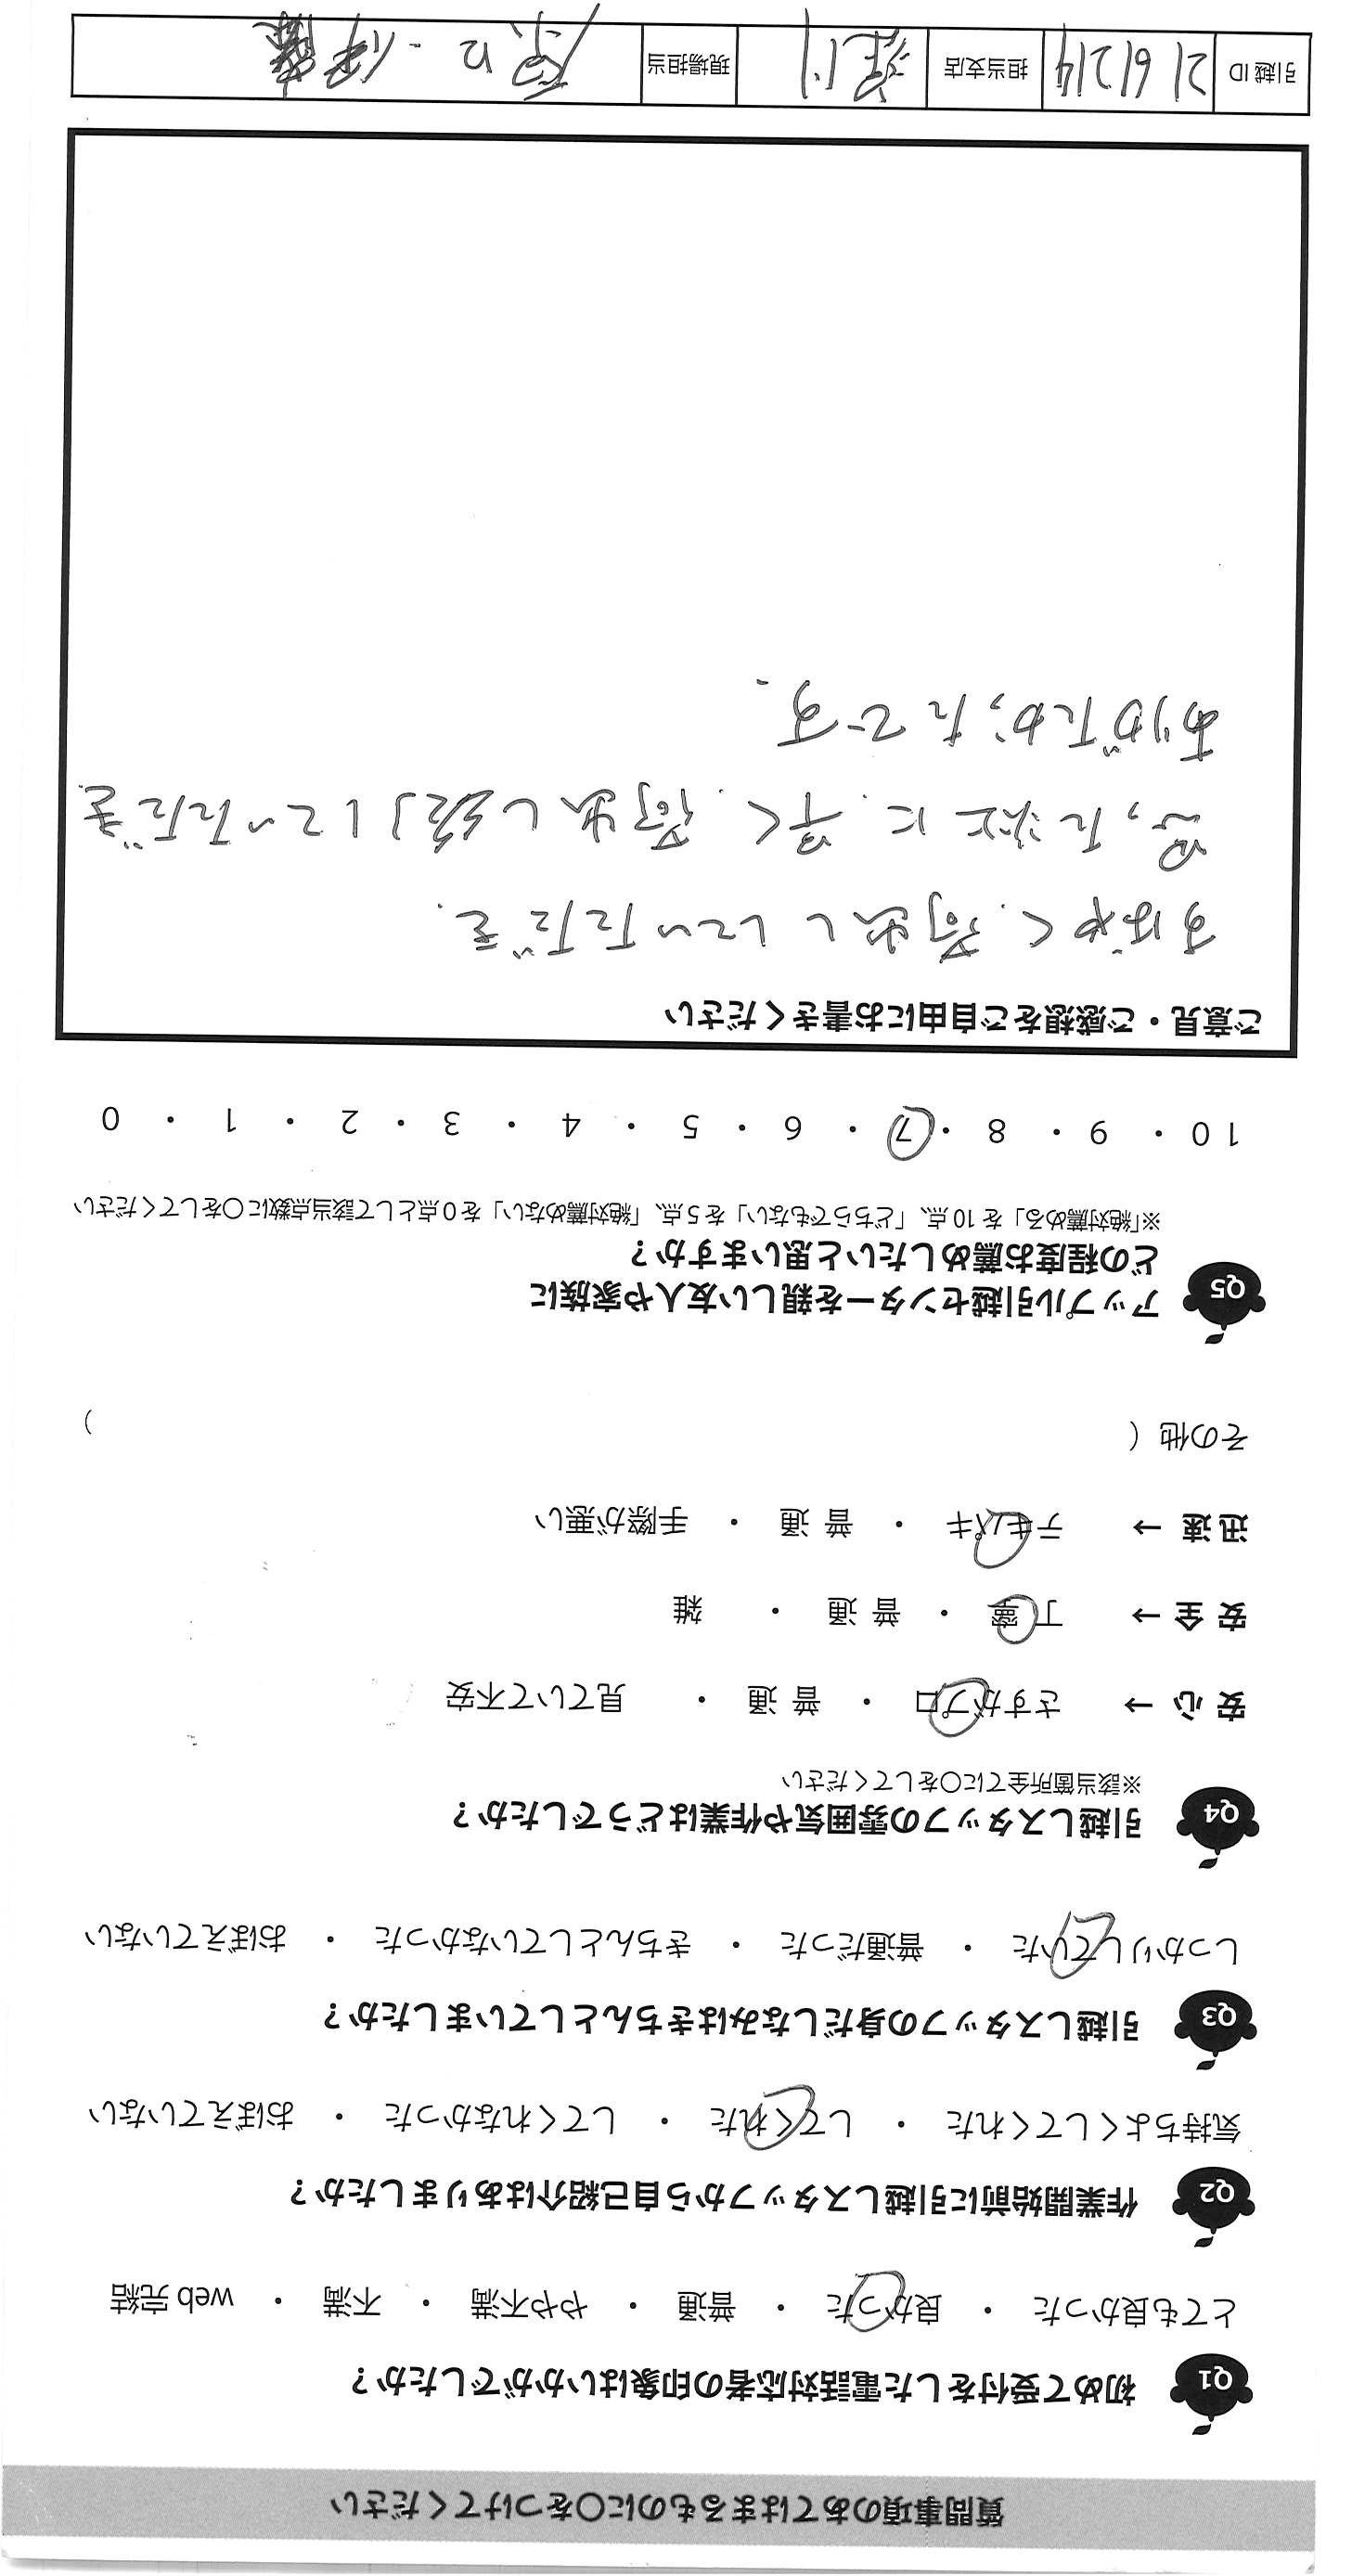 質問事項のあてはまるものに〇をつけてください
Q1 初めて受付をした電話対応者の印象はいかがでしたか？
とても良かった ・ 良かった ・ 普通 ・ やや不満 ・ 不満 ・ web 完結
Q2 作業開始前に引越しスタッフから自己紹介はありましたか？
気持ちよくしてくれた ・ してくれた ・ してくれなかった ・ おぼえていない
Q3 引越しスタッフの身だしなみはきちんとしていましたか？
しっかりしていた ・ 普通だった ・ きちんとしていなかった ・ おぼえていない
Q4 引越しスタッフの雰囲気や作業はどうでしたか？
※該当箇所全てに〇をしてください
安 心 → さすがプロ ・ 普 通 ・ 見ていて不安
安 全 → 丁 寧 ・ 普 通 ・ 雑
迅 速 → テキパキ ・ 普 通 ・ 手際が悪い
その他（ ）
Q5 アップル引越センターを親しい友人や家族に
どの程度お薦めしたいと思いますか？
※「絶対薦める」を 10 点、「どちらでもない」を 5 点、「絶対薦めない」を 0 点として該当点数に〇をしてください
10 ・ 9 ・ 8 ・ 7 ・ 6 ・ 5 ・ 4 ・ 3 ・ 2 ・ 1 ・ 0
ご意見・ご感想をご自由にお書きください
すばやく、荷出ししていただき、
思った以上に、早く、荷出し終了していただき、
ありがたかったです。
引越 ID 216214 担当支店 現場担当 原口・伊藤